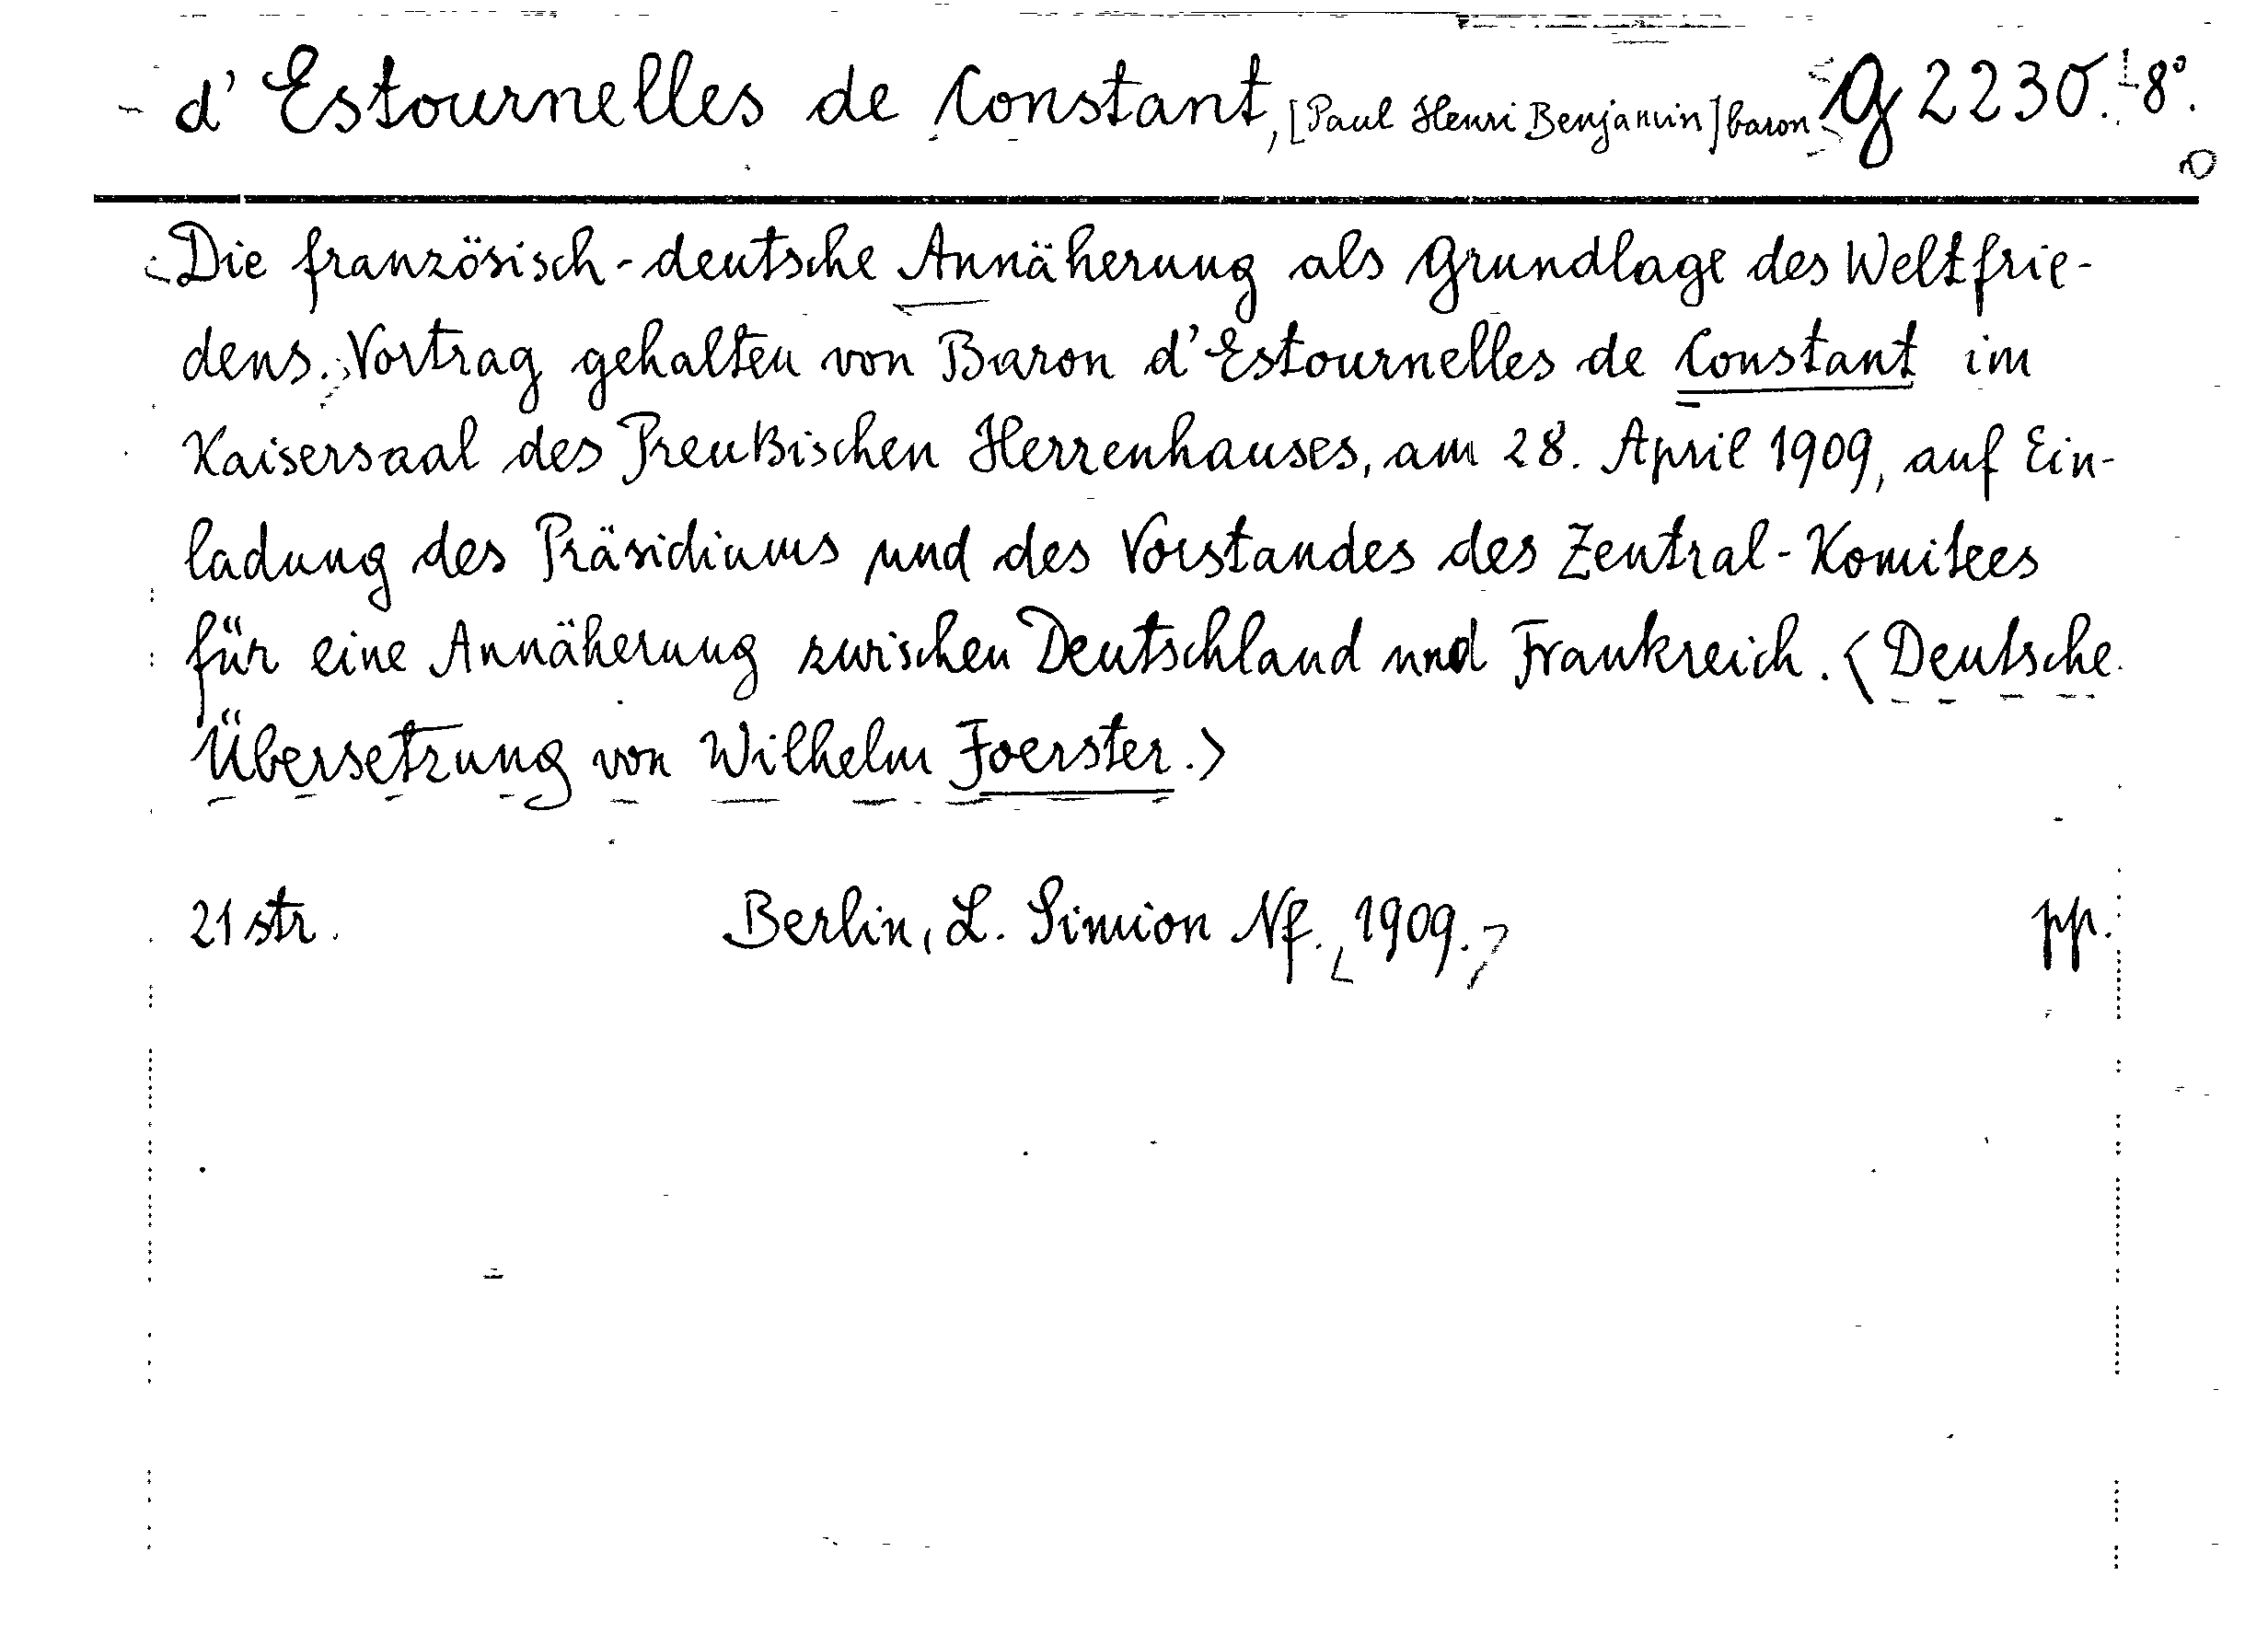 d'Estournelles de Constant, [Paul Henri Benjamin] baron g 2230.-8°.
Die französisch-deutsche Annäherung als Grundlage des Weltfrie-
dens. Vortrag gehalten von Baron d'Estournelles de Constant im
Kaisersaal des Preußischen Herrenhauses, am 28. April 1909, auf Ein-
ladung des Präsidiums und des Vorstandes des Zentral-Komitees
für eine Annäherung zwischen Deutschland und Frankreich. <Deutsche
Übersetzung von Wilhelm Foerster.>
21 str. Berlin, L. Simion Nf., 1909. pp.